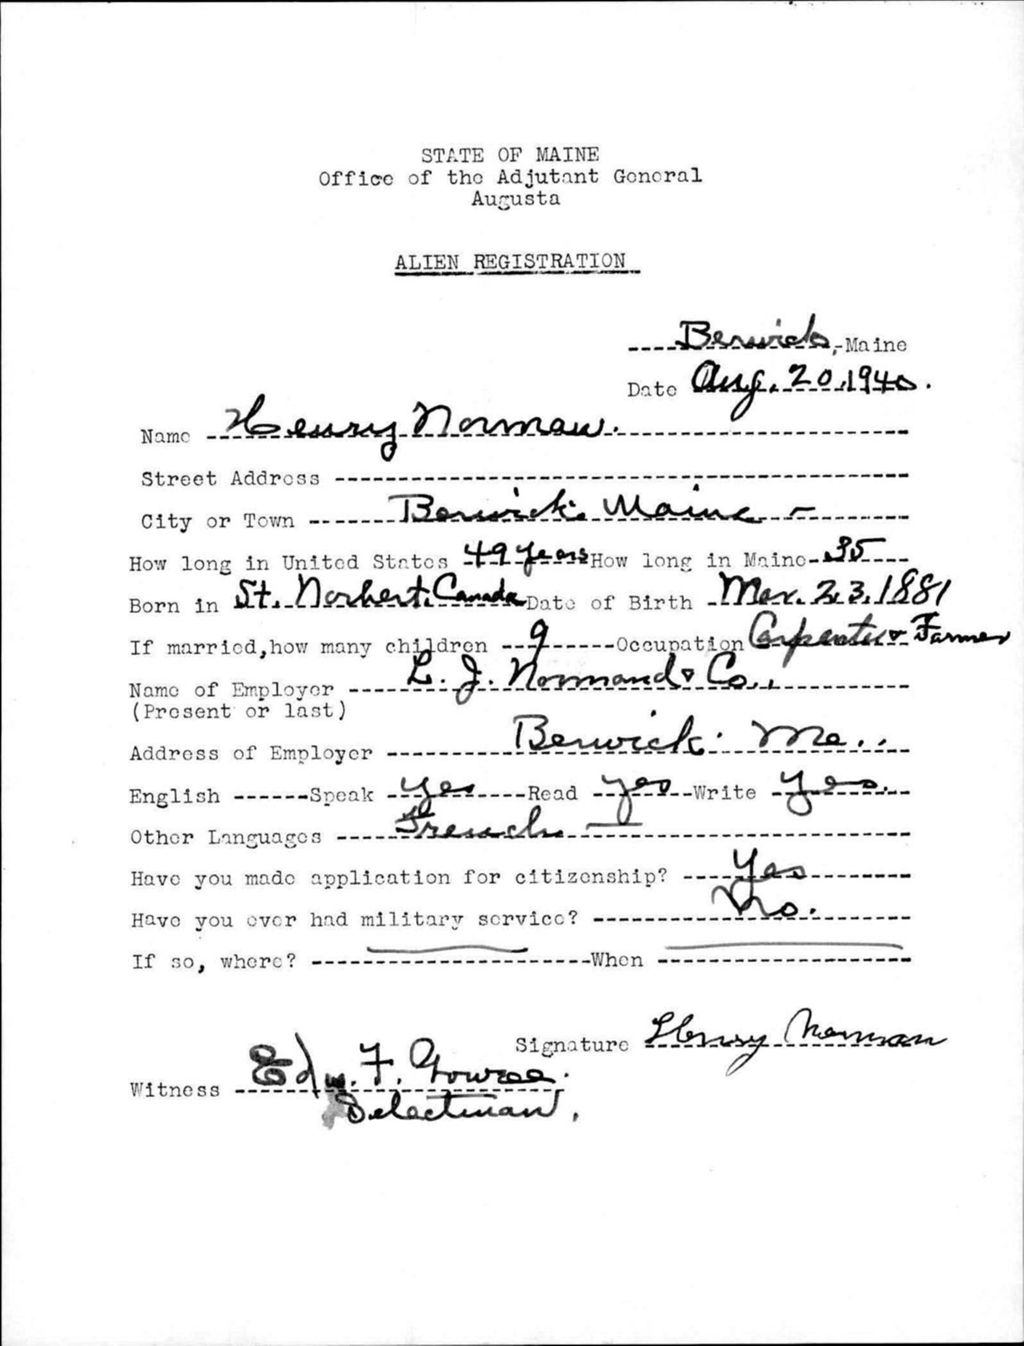 STATE OF MAINE
Office of the Adjutant General
Augusta
ALIEN REGISTRATION
Berwick, Maine
Date Aug. 20, 1940.
Name Henry Norman.
Street Address
City or Town Berwick. Maine -
How long in United States 49 years How long in Maine 35
Born in St. Norbert. Canada Date of Birth Mar. 23, 1881
If married, how many children 9 Occupation Carpenter & Farmer
Name of Employer L. J. Normand & Co.,
(Present or last)
Address of Employer Berwick. Me..
English Speak yes Read yes Write yes.
Other Languages French
Have you made application for citizenship? Yes
Have you ever had military service? No.
If so, where? When
Signature Henry Norman
Witness Edw. F. Gowell.
Selectman.